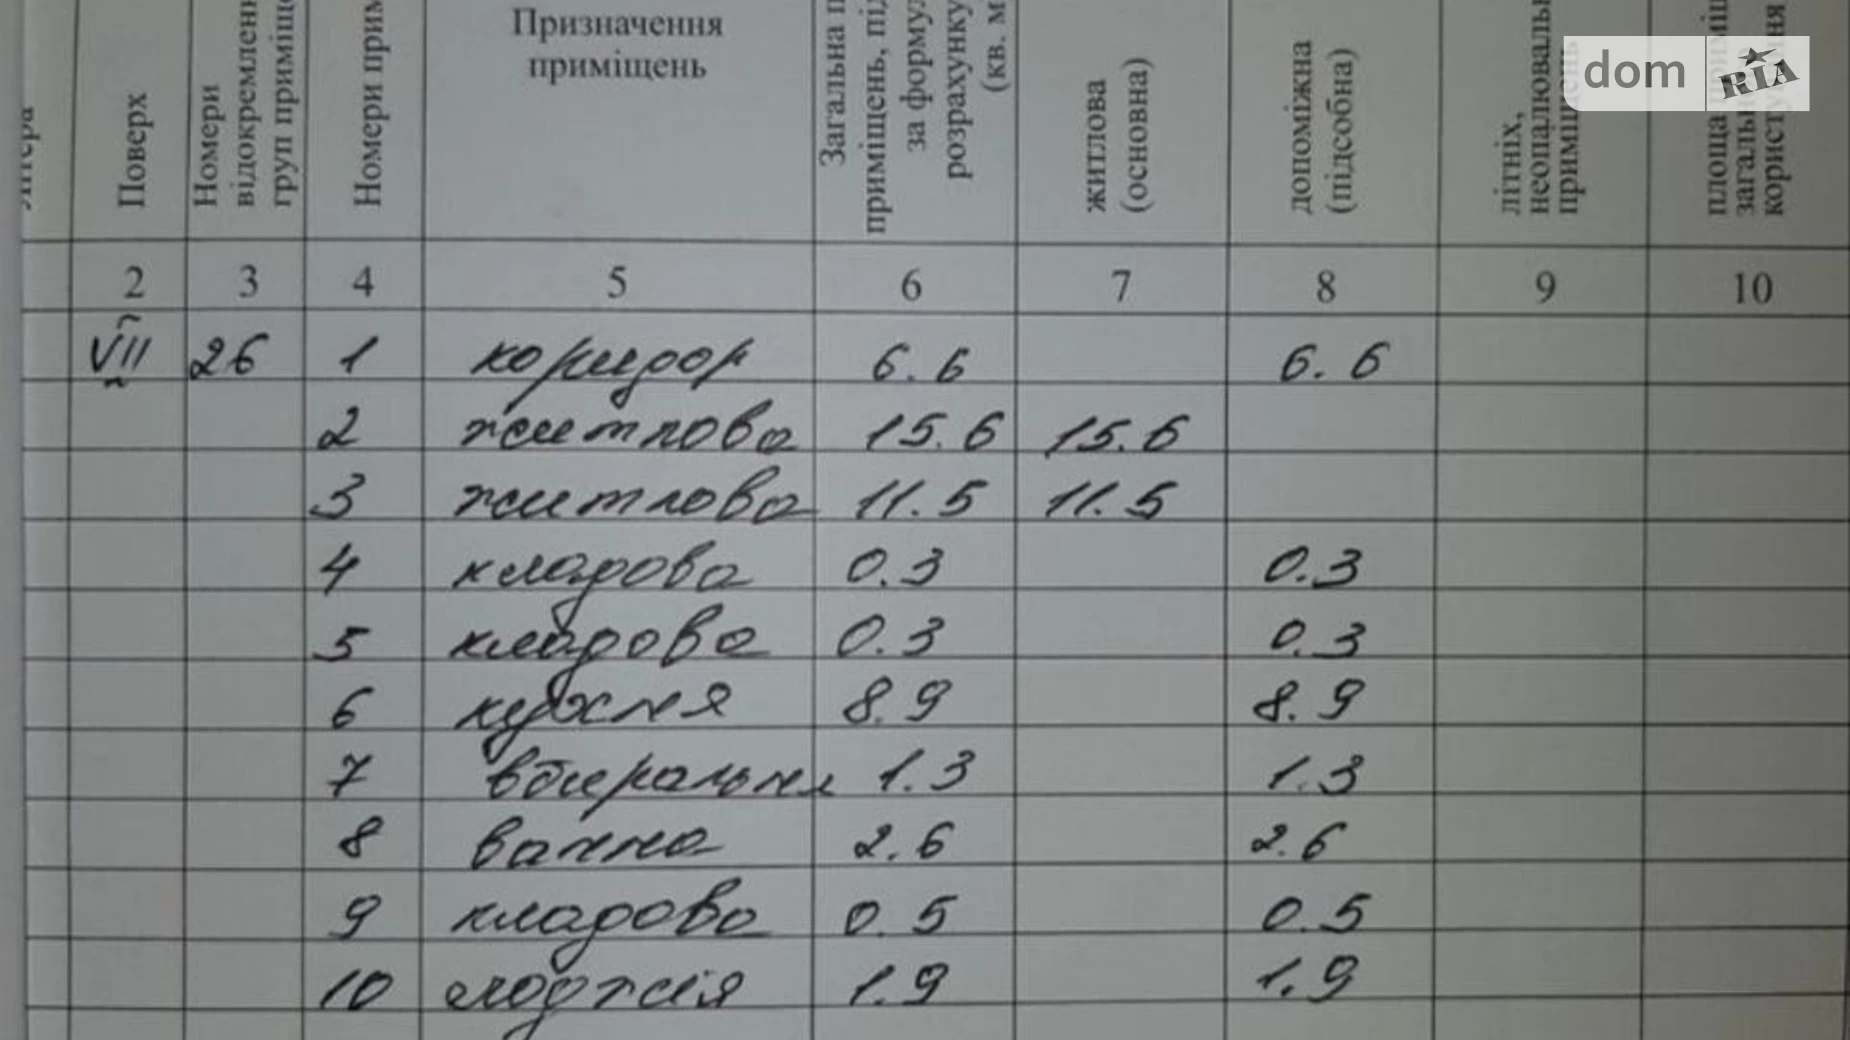 Поверх
Номери
груп
Номери
Призначення
приміщень
Загальна
приміщень,
за
розрахунку
(кв. м
житлова
(основна)
допоміжна
(підсобна)
літніх,
dom RIA
2 3 4 5 6 7 8 9 10
VII 26 1 коридор 6.6 6.6
2 житлова 15.6 15.6
3 житлова 11.5 11.5
4 кладова 0.3 0.3
5 кладова 0.3 0.3
6 кухня 8.9 8.9
7 вбиральня 1.3 1.3
8 ванна 2.6 2.6
9 кладова 0.5 0.5
10 лоджія 1.9 1.9